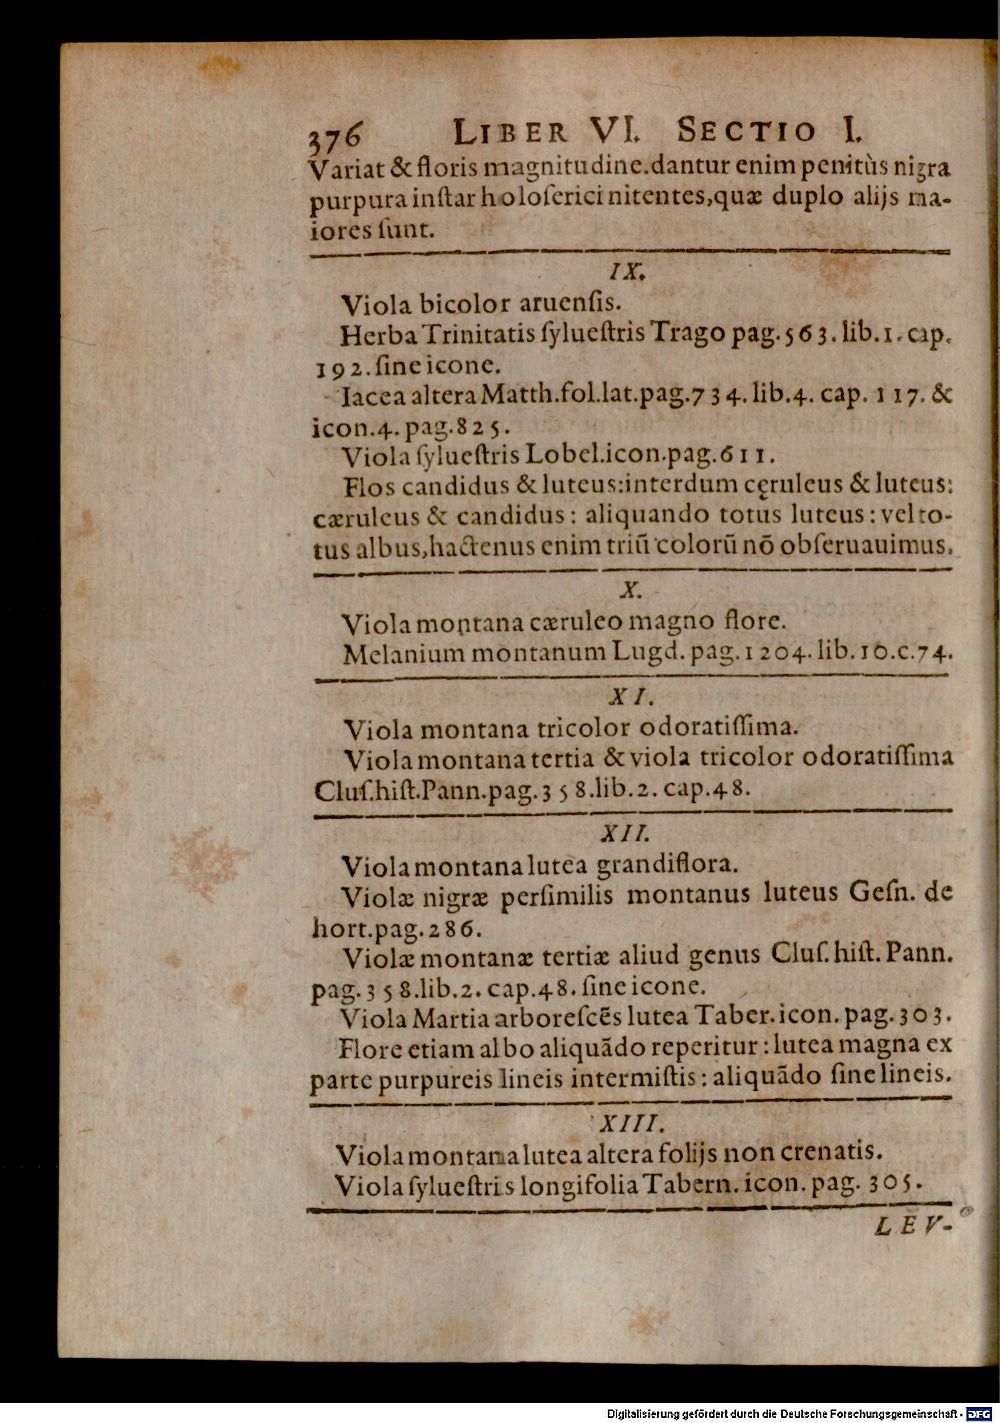 376 LIBER VI. SECTIO I.
Variat & floris magnitudine.dantur enim penitùs nigra
purpura inſtar holoſerici nitentes,quæ duplo alijs ma-
iores ſunt.
IX.
Viola bicolor aruenſis.
Herba Trinitatis ſylueſtris Trago pag.563.lib.1.cap.
192.ſine icone.
Iacea altera Matth.fol.lat.pag.734.lib.4. cap. 117. &
icon.4.pag.825.
Viola ſylueſtris Lobel.icon.pag.611.
Flos candidus & luteus:interdum cęruleus & luteus:
cæruleus & candidus: aliquando totus luteus: vel to-
tus albus,hactenus enim triũ colorũ nõ obſeruauimus.
X.
Viola montana cæruleo magno flore.
Melanium montanum Lugd. pag.1204.lib.10.c.74.
XI.
Viola montana tricolor odoratiſſima.
Viola montana tertia & viola tricolor odoratiſſima
Cluſ.hiſt.Pann.pag.358.lib.2.cap.48.
XII.
Viola montana lutea grandiflora.
Violæ nigræ perſimilis montanus luteus Geſn. de
hort.pag.286.
Violæ montanæ tertiæ aliud genus Cluſ.hiſt.Pann.
pag.358.lib.2.cap.48.ſine icone.
Viola Martia arboreſcẽs lutea Taber.icon.pag.303.
Flore etiam albo aliquãdo reperitur:lutea magna ex
parte purpureis lineis intermiſtis: aliquãdo ſine lineis.
XIII.
Viola montana lutea altera folijs non crenatis.
Viola ſylueſtris longifolia Tabern.icon.pag. 305.
LEV-
Digitalisierung gefördert durch die Deutsche Forschungsgemeinschaft - DFG